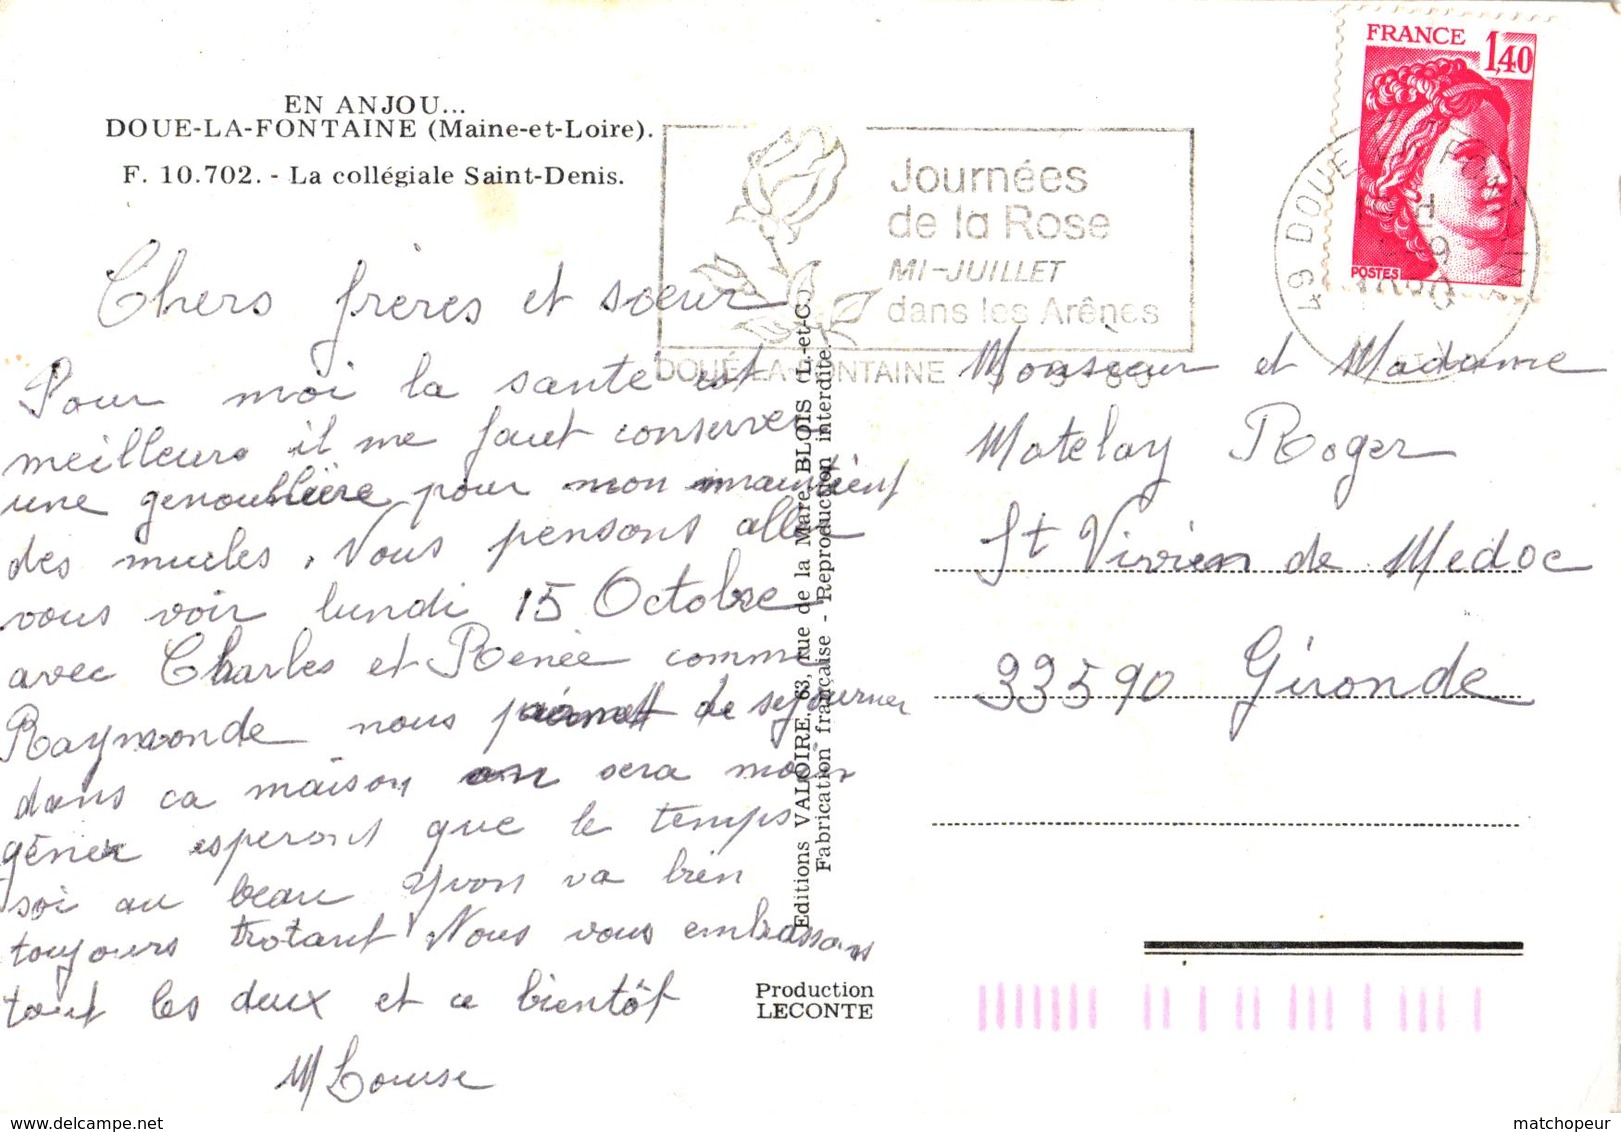 EN ANJOU...
DOUE-LA-FONTAINE (Maine-et-Loire).
F. 10.702. - La collégiale Saint-Denis.
Journées
de la Rose
MI-JUILLET
dans les Arênes
DOUÉ-LA-FONTAINE
FRANCE
1,40
POSTES
49 DOUE LA FONTAINE
1980
Chers frères et sœur
Pour moi la santé est
meilleure il me faut conserver
une genoublière pour mon maintient
des mucles. Nous pensons aller
vous voir lundi 15 Octobre
avec Charles et Renée comme
Raymonde nous permet de sejourner
dans ca maison on sera moin
géner esperont que le temps
soi au beau Yvon va bien
toujours trotant Nous vous embrassons
tout les deux et a bientôt
M Louise
Monsieur et Madame
Matelay Roger
St Vivien de Medoc
33590 Gironde
Editions VALOIRE, 63, rue de la Mare, BLOIS (L.-et-C.)
Fabrication française - Reproduction interdite.
Production
LECONTE
matchopeur